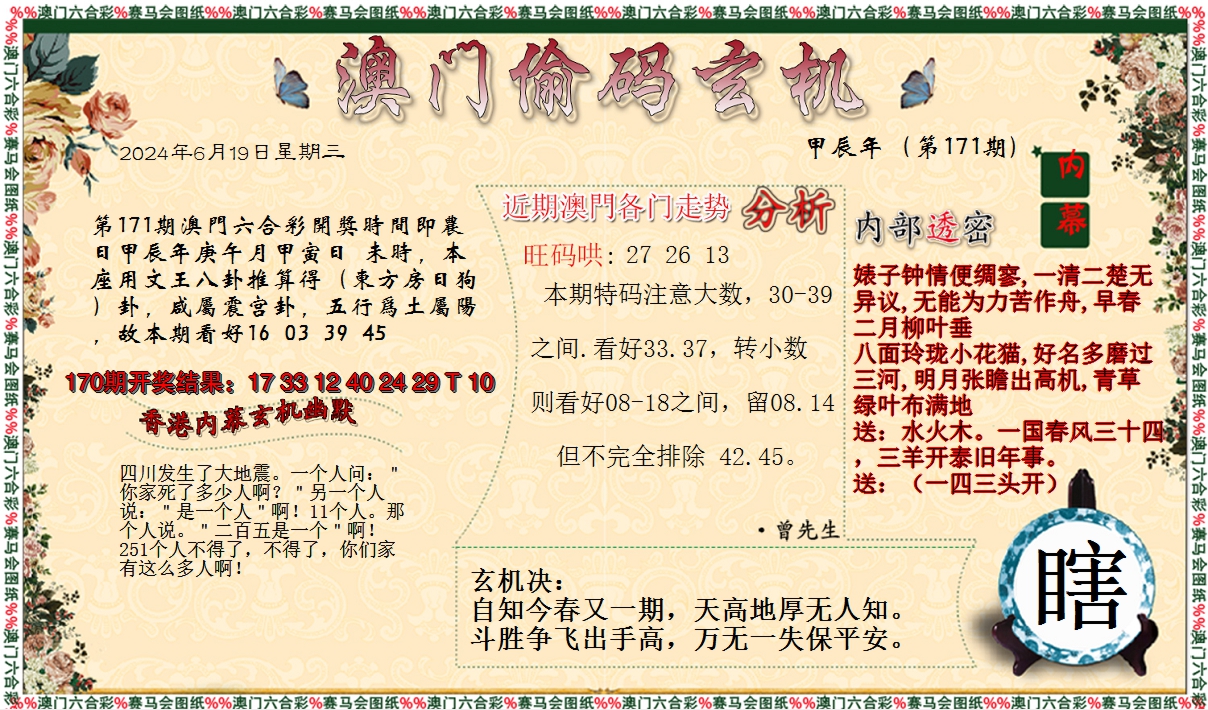 %%澳门六合彩%赛马会图纸%%澳门六合彩%赛马会图纸%%澳门六合彩%赛马会图纸%%澳门六合彩%赛马会图纸%%澳门六合彩%赛马会图纸%%澳门六合彩%赛马会图纸%%澳门六合彩%赛马会图纸%%
澳门偷码玄机
2024年6月19日星期三
甲辰年（第171期）
第171期澳門六合彩開獎時間即農
日甲辰年庚午月甲寅日 未時，本
座用文王八卦推算得（東方房日狗
）卦，咸屬震宫卦，五行爲土屬陽
，故本期看好16 03 39 45
170期开奖结果：17 33 12 40 24 29 T 10
香港内幕玄机幽默
四川发生了大地震。一个人问："
你家死了多少人啊？"另一个人
说："是一个人"啊！11个人。那
个人说。"二百五是一个"啊！
251个人不得了，不得了，你们家
有这么多人啊！
近期澳門各门走势 分析
旺码哄: 27 26 13
本期特码注意大数，30-39
之间.看好33.37，转小数
则看好08-18之间，留08.14
但不完全排除 42.45。
·曾先生
玄机决：
自知今春又一期，天高地厚无人知。
斗胜争飞出手高，万无一失保平安。
内幕
内部透密
婊子钟情便绸寥,一清二楚无
异议,无能为力苦作舟,早春
二月柳叶垂
八面玲珑小花猫,好名多磨过
三河,明月张瞻出高机,青草
绿叶布满地
送：水火木。一国春风三十四
，三羊开泰旧年事。
送：（一四三头开）
瞎
%%澳门六合彩%赛马会图纸%%澳门六合彩%赛马会图纸%%澳门六合彩%赛马会图纸%%澳门六合彩%赛马会图纸%%澳门六合彩%赛马会图纸%%澳门六合彩%赛马会图纸%%澳门六合彩%赛马会图纸%%